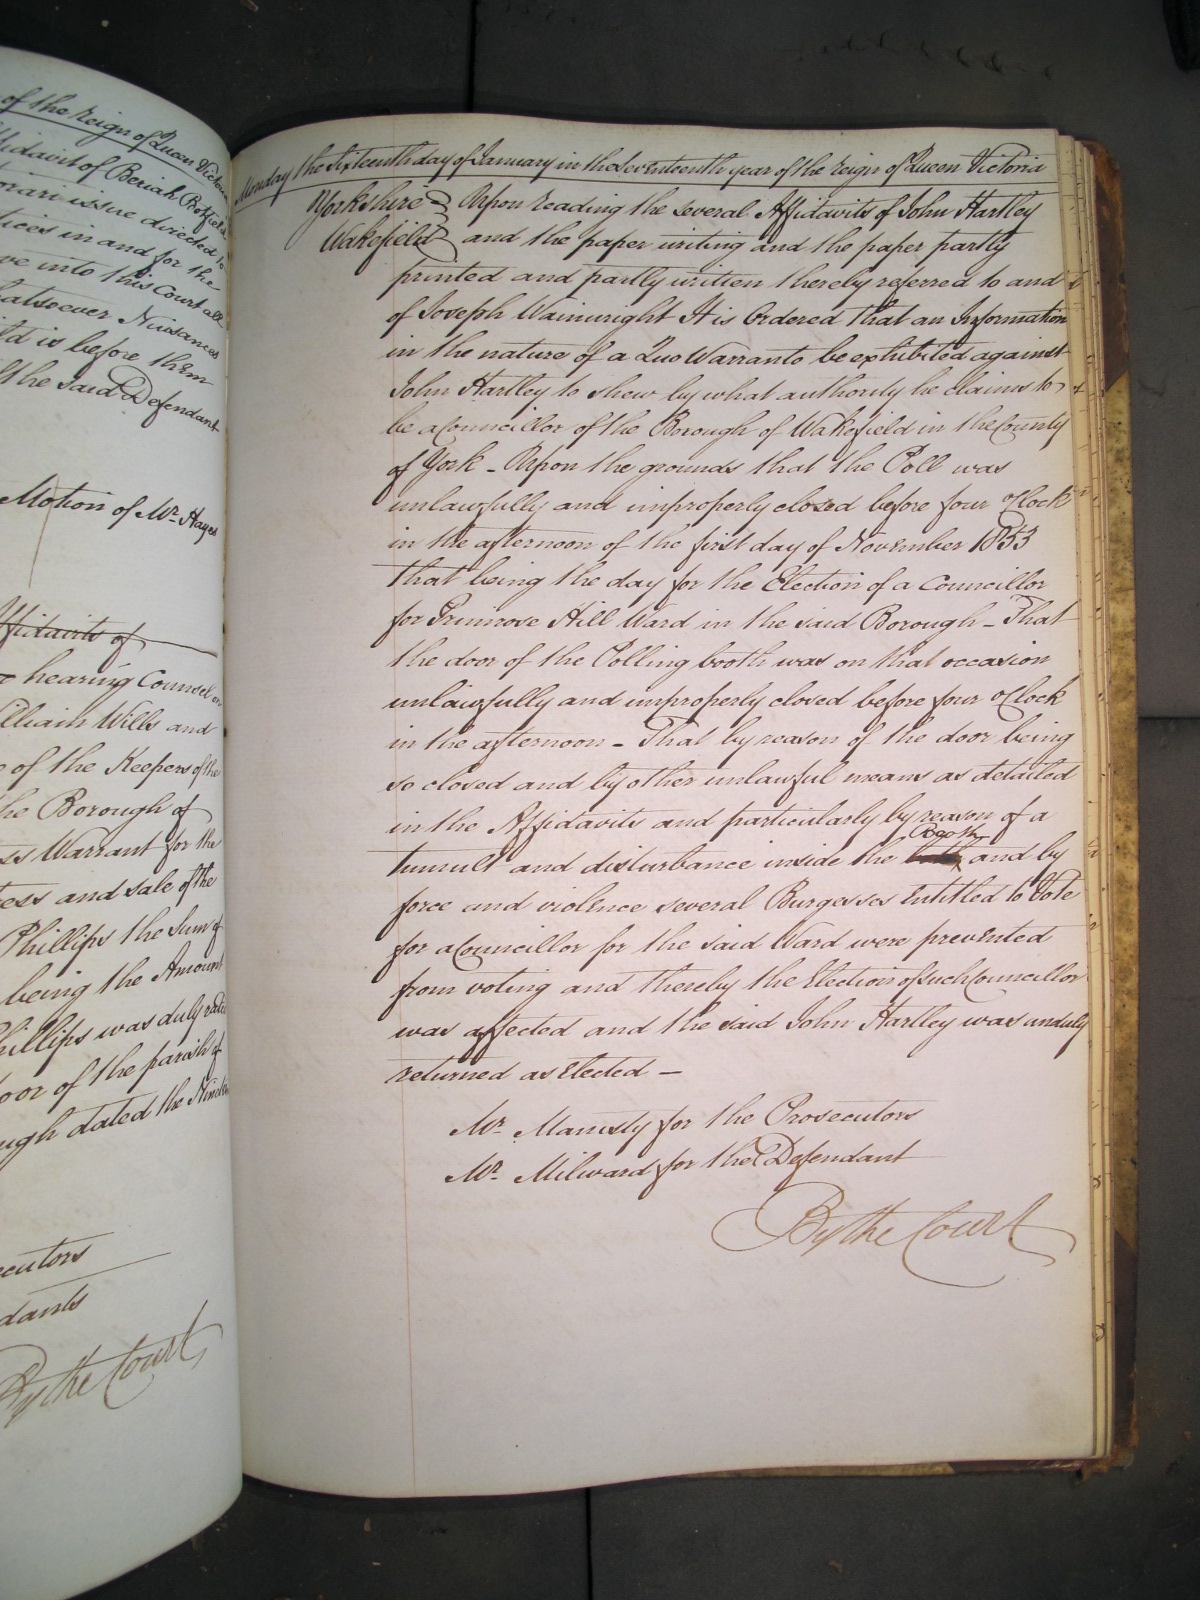 of the reign of Queen Victoria
Affidavit of Beriah Botfield
issue directed to
in and for the
into this Court all
whatsoever Nuisances
is before them
the said Defendant
Motion of Mr. Hayes
Affidavits of
hearing Counsel on
William Wills and
of the Keepers of the
the Borough of
Warrant for the
and sale of the
Phillips the Sum of
being the Amount
Phillips was duly rated
poor of the parish of
dated the
By the Court
Monday the Sixteenth day of January in the Seventeenth year of the reign of Queen Victoria
Yorkshire Upon reading the several Affidavits of John Hartley
Wakefield and the paper writing and the paper partly
printed and partly written thereby referred to and
of Joseph Wainwright It is Ordered that an Information
in the nature of a Quo Warranto be exhibited against
John Hartley to shew by what authority he claims to
be a Councillor of the Borough of Wakefield in the County
of York – Upon the grounds that the Poll was
unlawfully and improperly closed before four o'Clock
in the afternoon of the first day of November 1853
that being the day for the Election of a Councillor
for Primrose Hill Ward in the said Borough – That
the door of the Polling booth was on that occasion
unlawfully and improperly closed before four o'Clock
in the afternoon – That by reason of the door being
so closed and by other unlawful means as detailed
in the Affidavits and particularly by reason of a
tumult and disturbance inside the Booth and by
force and violence several Burgesses entitled to Vote
for a Councillor for the said Ward were prevented
from voting and thereby the Election of such Councillor
was affected and the said John Hartley was unduly
returned as Elected –
Mr. Manisty for the Prosecutors
Mr. Milward for the Defendant
By the Court